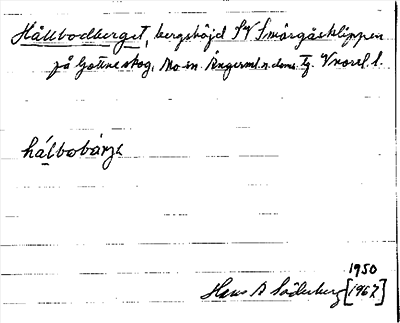 Hållbodberget, bergshöjd SV Smörgåsklippen
på Gottne skog, Mo sn Ångerml. n. doms. tg. V norrl. l.
hálbobárjɛ
1950
Hans B Söderberg [1967]